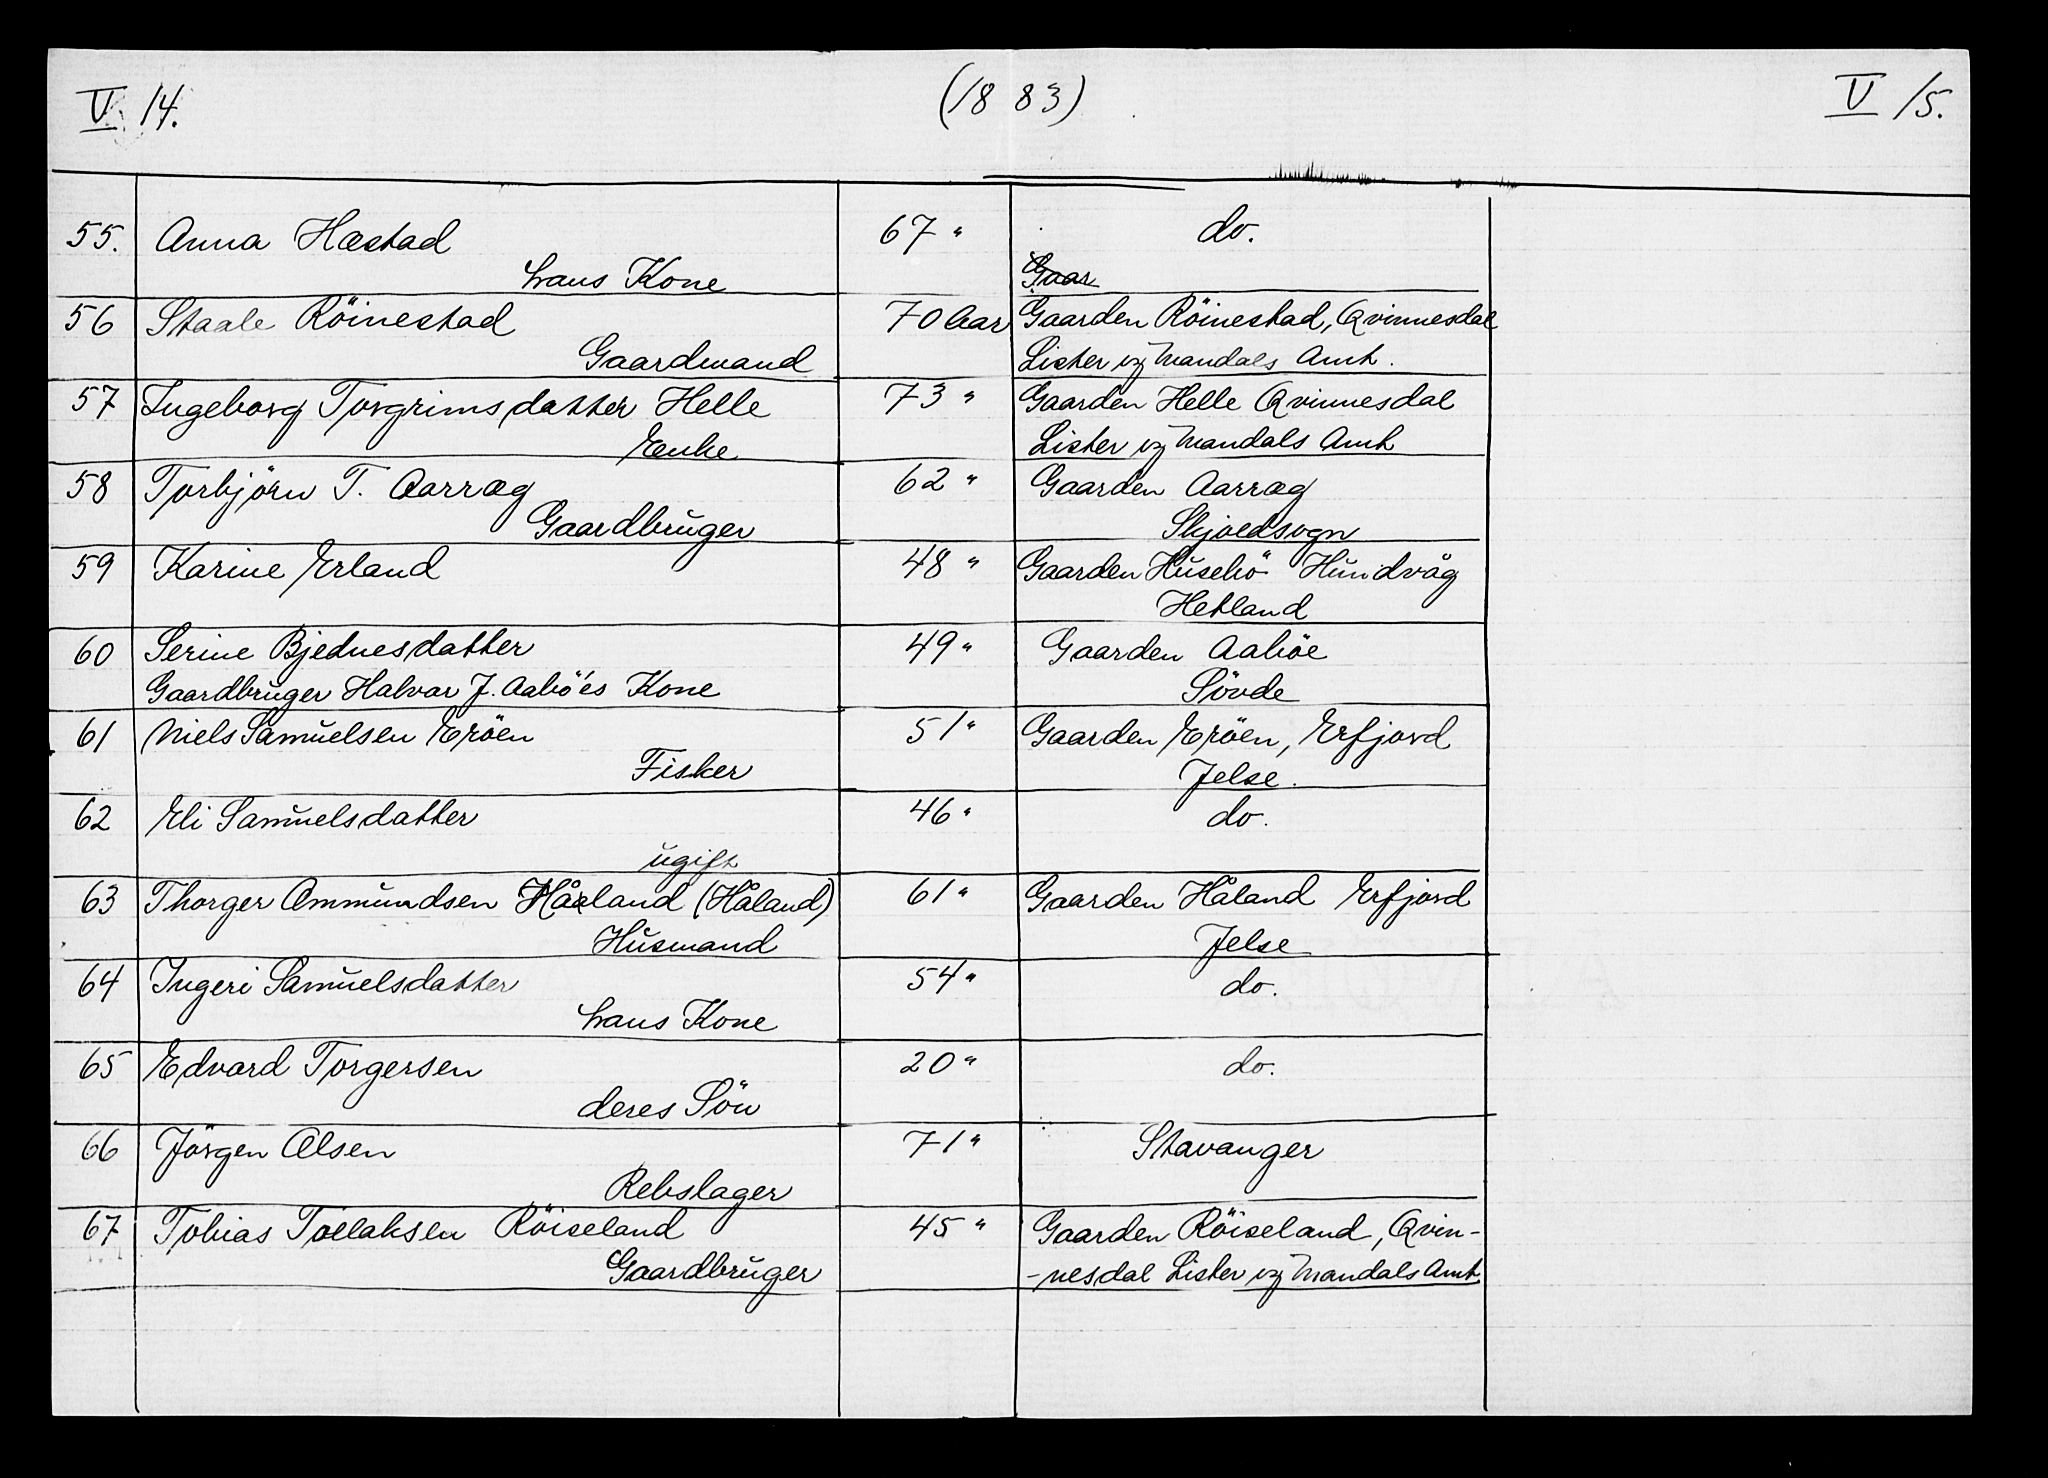 V. 14. (1883) V 15.
55. Anna Hæstad 67 " do.
hans Kone Gaar
56 Staale Röinestad 70 Aar Gaarden Röinestad, Qvinnesdal
Gaardmand Lister og Mandals Amt.
57 Ingeborg Torgrimsdatter Helle 73 " Gaarden Helle Qvinnesdal
Enke Lister og Mandals Amt
58 Torbjörn T. Aarræg 62 " Gaarden Aarræg
Gaardbruger Skjoldsogn
59 Karine Erland 48 " Gaarden Husebö Hundvåg
Hetland
60 Serine Bjednesdatter 49 " Gaarden Aaböe
Gaardbruger Halvar J. Aaböes Kone Sövde
61 Niels Samuelsen Eröen 51 " Gaarden Eröen, Erfjord
Fisker Jelse.
62 Eli Samuelsdatter 46 " do.
ugift
63 Thorger Ommundsen Håland (Håland) 61 " Gaarden Håland Erfjord
Husmand Jelse
64 Ingeri Samuelsdatter 54 " do.
hans Kone
65 Edvard Torgersen 20 " do.
deres Sön
66 Jörgen Olsen 71 " Stavanger
Rebslager
67 Tobias Tollaksen Röiseland 45 " Gaarden Röiseland, Qvin-
Gaardbruger -nesdal Lister og Mandals Amt